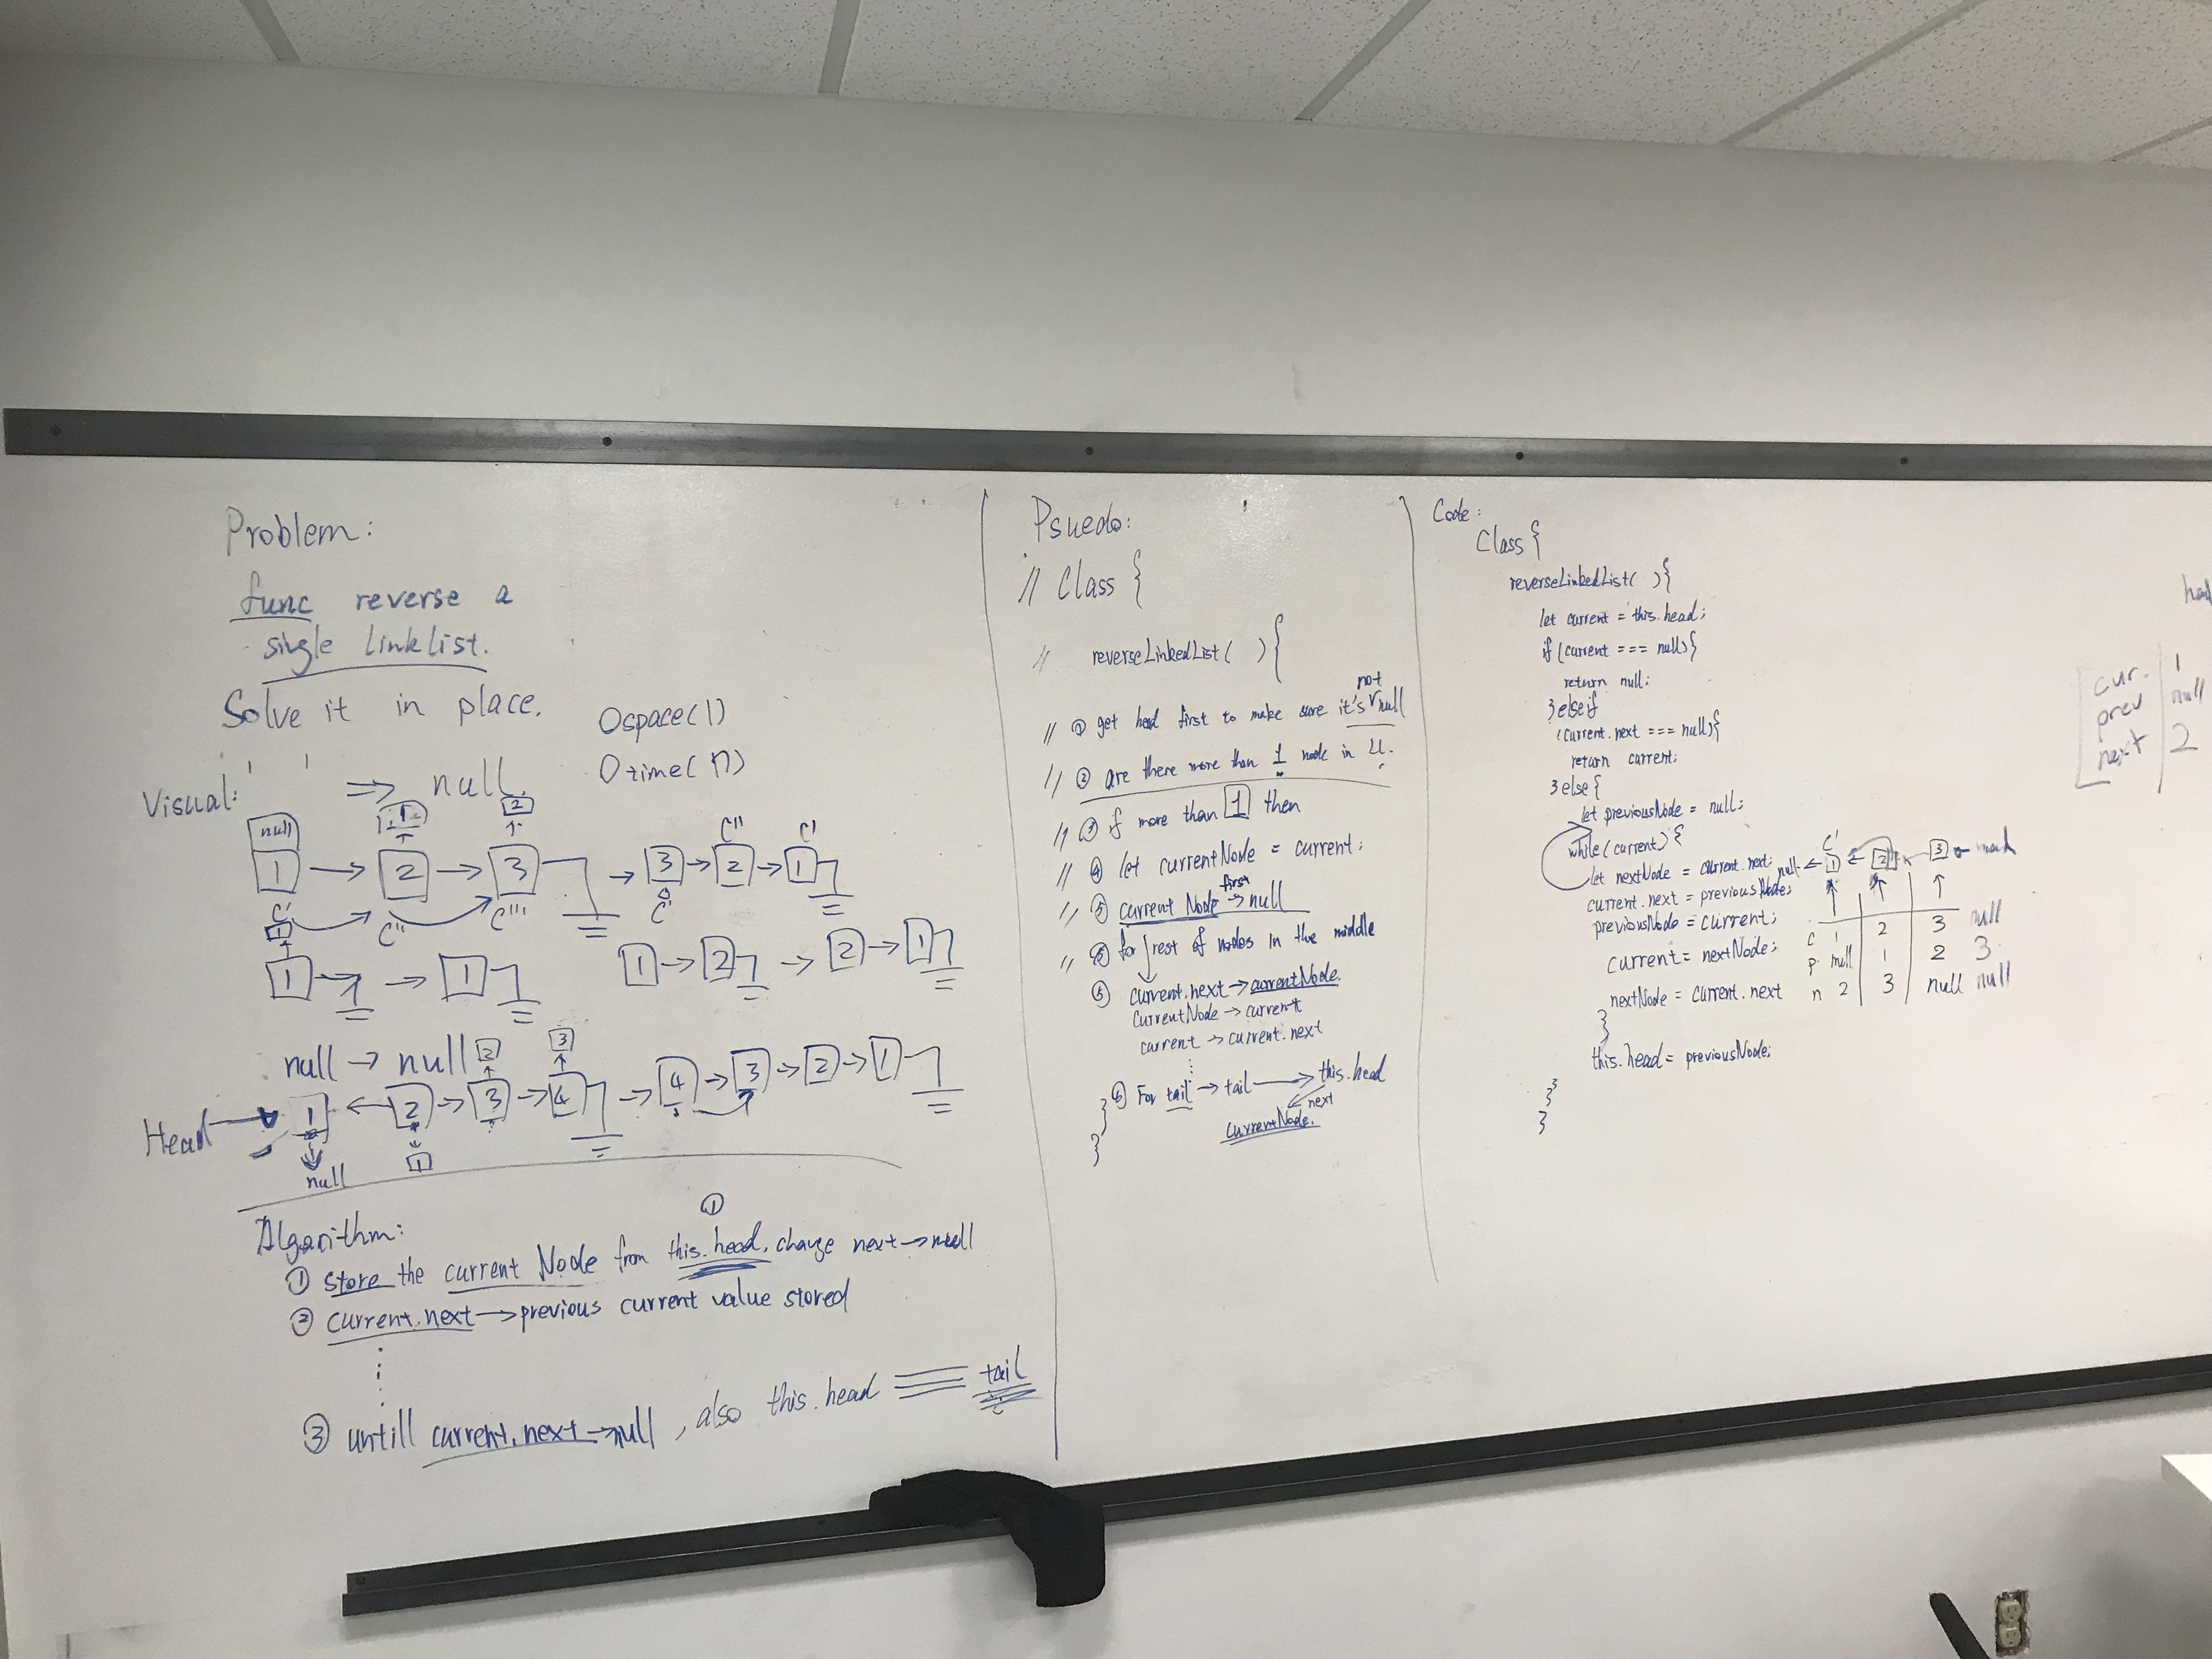 Problem:
func reverse a
single linklist.
Solve it in place.
Ospace(1)
Otime(n)
Visual:
⇒ null.
null
2
1 → 2 → 3 → 3 → 2 → 1
C' C'' C''' C' C'' C'
1
1 → 1 → 1
1 → 2 → 2 → 1
null → null
2 3
Head → 1 ← 2 → 3 → 4 → 4 → 3 → 2 → 1
null
1
Algorithm:
①
① store the current Node from this.head, change next → null
② current.next → previous current value stored
③ untill current.next → null, also this.head === tail
Psuedo:
// Class {
// reverseLinkedList( ) {
not
// ① get head first to make sure it's null
// ② are there more than 1 node in LL.
// ③ if more than 1 then
// ④ let currentNode = current;
first
// ⑤ current Node → null
// ⑥ for rest of nodes in the middle
⑤ current.next → currentNode.
currentNode → current
current → current.next
⑥ For tail → tail → this.head
next
currentNode.
}
}
Code:
Class {
reverseLinkedList( ) {
let current = this.head;
if (current === null) {
return null;
} else if
(current.next === null) {
return current;
} else {
let previousNode = null;
while (current) {
let nextNode = current.next;
current.next = previousNode;
previousNode = current;
current = nextNode;
nextNode = current.next
}
this.head = previousNode;
}
}
C'
null ← 1 ← 2 3
c 1 2 3 null
p null 1 2 3
n 2 3 null null
cur. 1
prev null
next 2